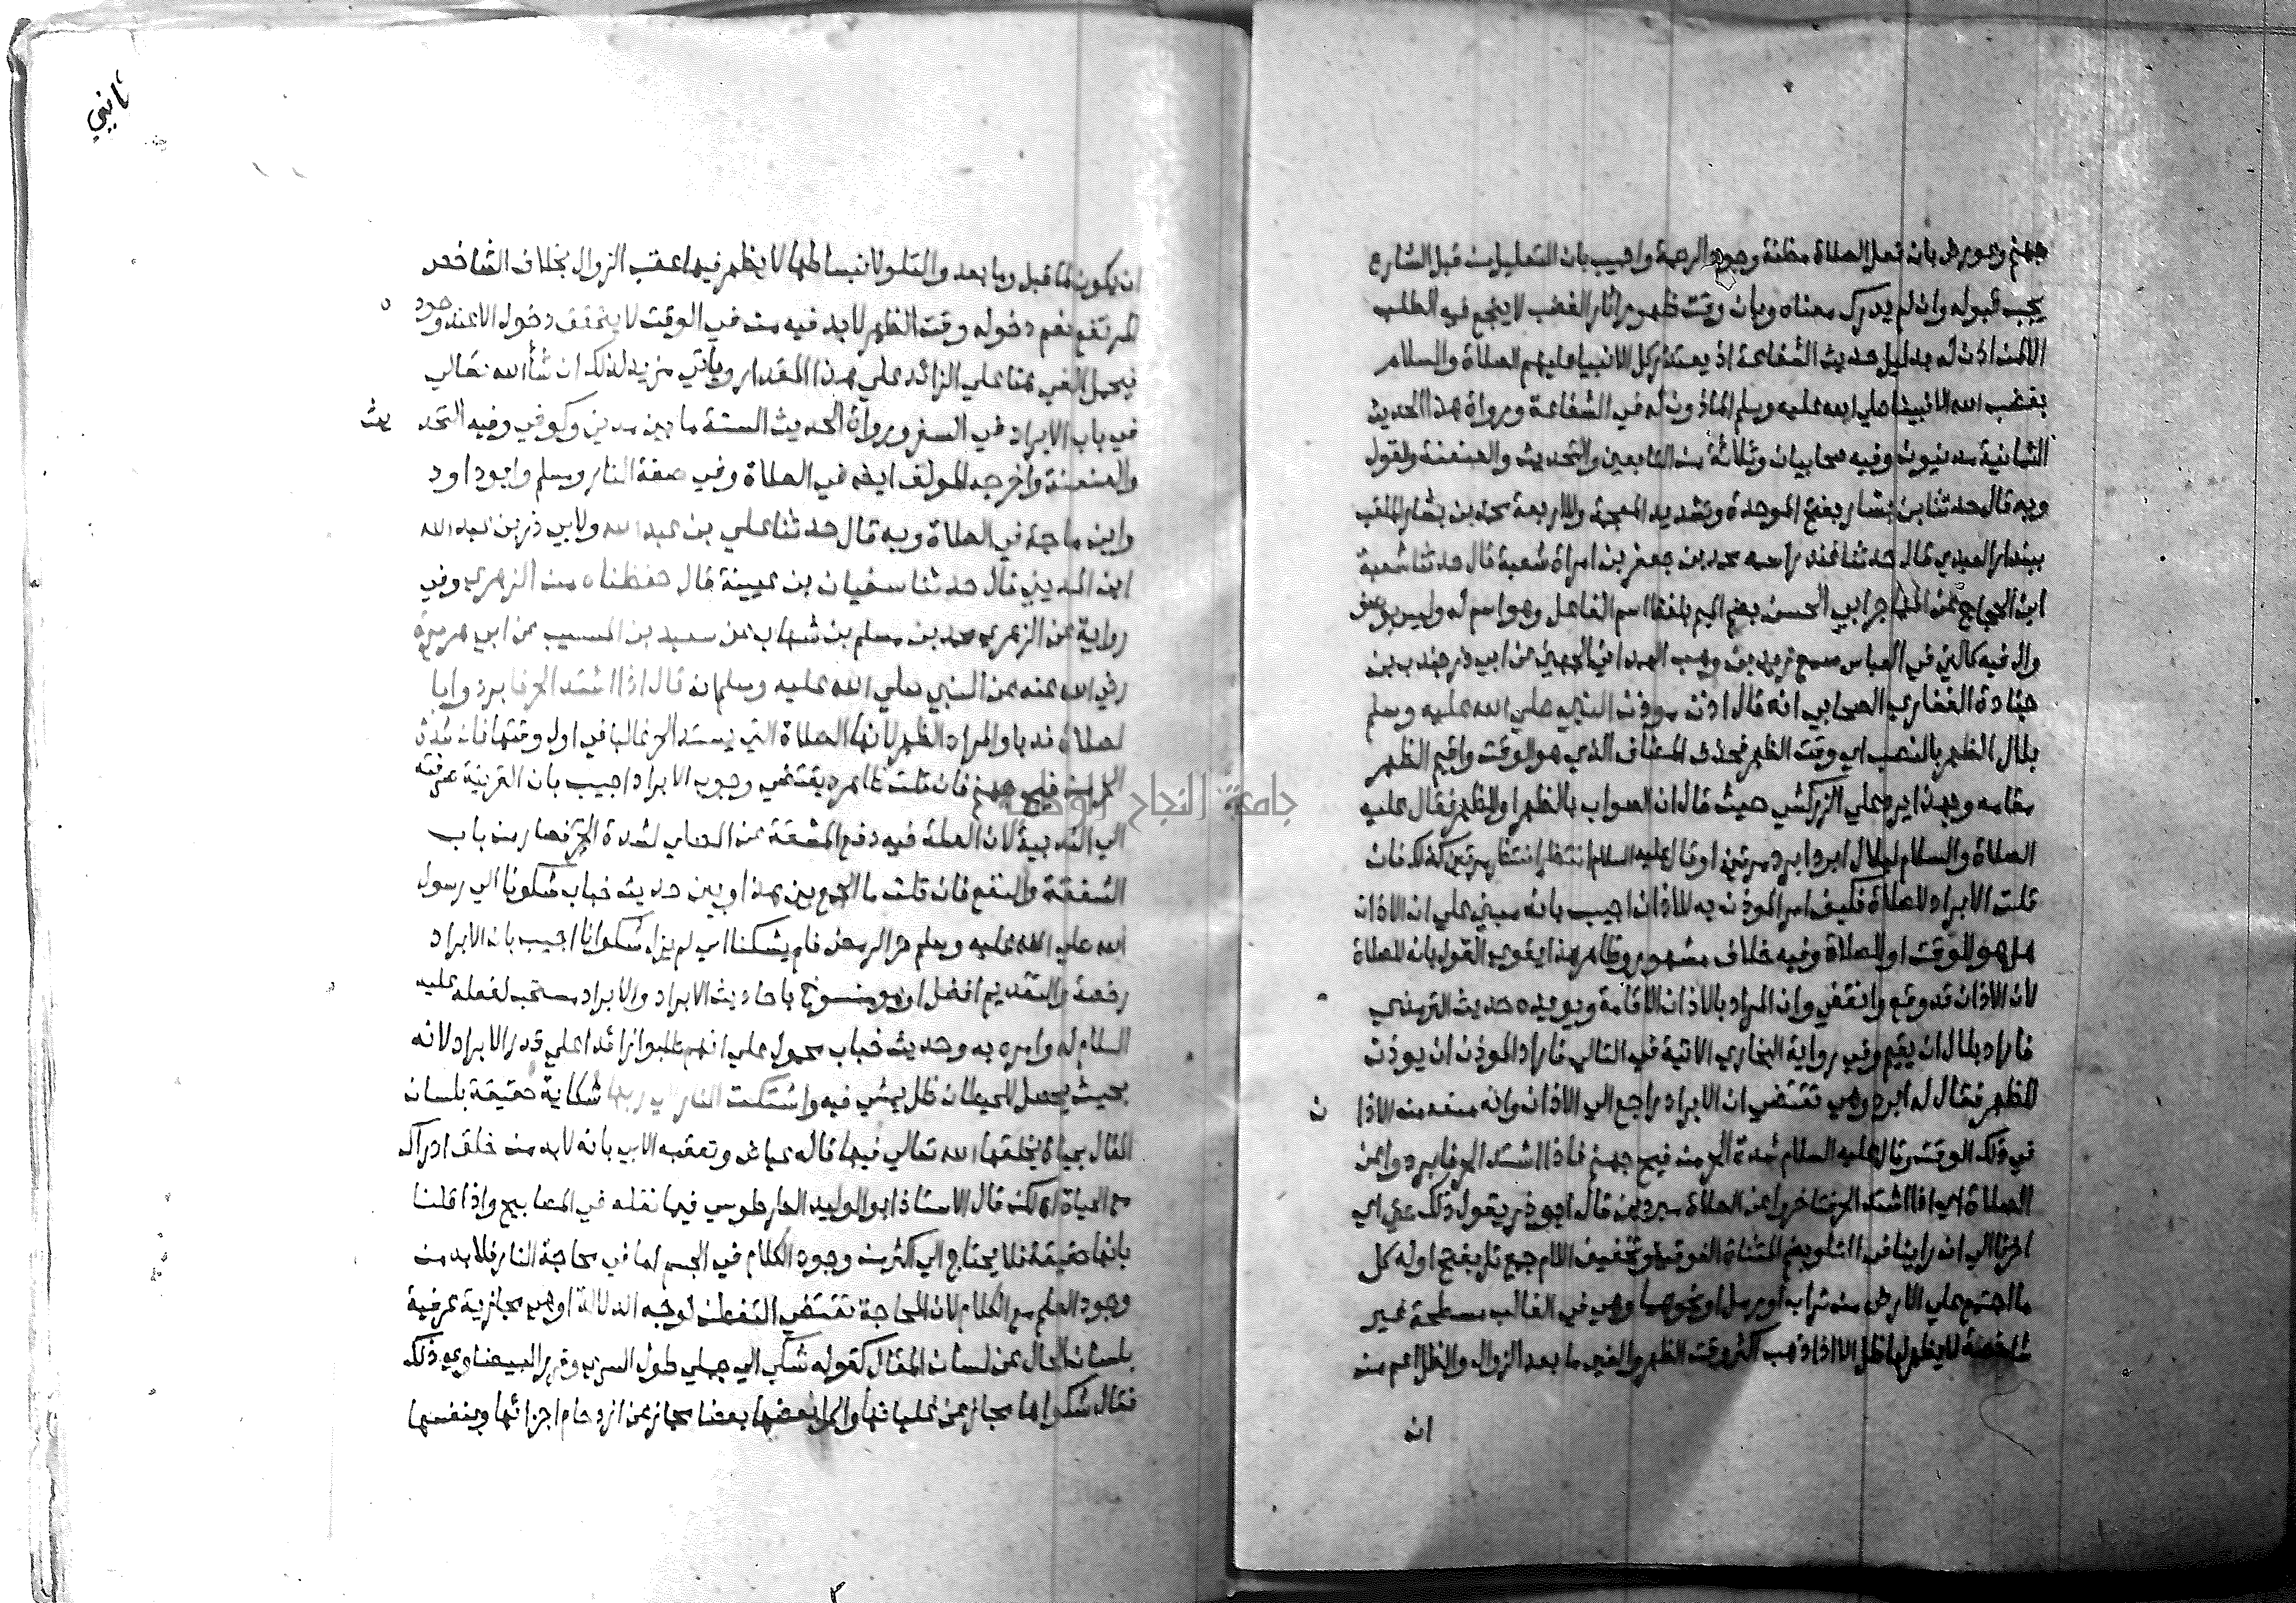 جهنم وعورض بان فعل الصلاة مظنة وجود الرحمة واجيب بان التعليل من قبل الشارع
يجب قبوله وان لم يدرك معناه وبان وقت ظهور اثار الغضب لا ينجع فيه الطلب
الا لمن اذن له بدليل حديث الشفاعة اذ يعتذر كل الانبيا عليهم الصلاة والسلام
بغضب الله الا نبينا صلي الله عليه وسلم الماذون له في الشفاعة ورواة هذا الحديث
الثمانية مدنيون وفيه صحابيان وثلاثة من التابعين والتحديث والعنعنة والقول
وبه قال حدثنا بن بشار بفتح الموحدة وتشديد المعجمة وللاربعة محمد بن بشار الملقب
ببندار العبدي قال حدثنا غندر اسمه محمد بن جعفر بن امراة شعبة قال حدثنا شعبة
ابن الحجاج عن المهاجر ابي الحسن بضم الميم بلفظ اسم الفاعل وهو اسم له وليس بوصف
وال فيه كالتي في العباس سمع زيد بن وهب الهمداني الجهني عن ابي ذر جندب بن
جنادة الغفاري الصحابي انه قال اذن موذن النبي صلي الله عليه وسلم
بلال الظهر بالنصب اي وقت الظهر فحذف المضاف الذي هو الوقت واقيم الظهر
مقامه وبهذا يرد علي الزركشي حيث قال ان الصواب بالظهر او للظهر فقال عليه
الصلاة والسلام لبلال ابرد ابرد مرتين او قال عليه السلام انتظر انتظر مرتين كذلك فان
قلت الابراد للصلاة فكيف امر الموذن به للاذان اجيب بانه مبني علي ان الاذان
هل هو للوقت او للصلاة وفيه خلاف مشهور وظاهر هذا يقوي القول بانه للصلاة
لان الاذان قد وقع وانقضي وان المراد بالاذان الاقامة ويويده حديث الترمذي
فاراد بلال ان يقيم وفي رواية البخاري الاتية في التالي فاراد الموذن ان يوذن
للظهر فقال له ابرد وهي تقتضي ان الابراد راجع الي الاذان وانه منعه من الاذا ن
في ذلك الوقت وقال عليه السلام شدة الحر من فيح جهنم فاذا اشتد الحر فابردوا عن
الصلاة اي اذا اشتد الحر فتاخروا عن الصلاة مبردين قال ابو ذر يقول ذلك حتي اي
اخرنا الي ان راينا في التلول بضم المثناة الفوقية وتخفيف اللام جمع تل بفتح اوله كل
ما اجتمع علي الارض من تراب او رمل او نحوهما وهي في الغالب مسطحة غير
شاخصة لا يظهر لها ظل الا اذا ذهب اكثر وقت الظهر والفي ما بعد الزوال والظل اعم منه
ان
ثاني
ان يكون لما قبل وما بعد والتلول لانبساطها لا يظهر فيها عقب الزوال بخلاف الشاخص
المرتفع نعم دخول وقت الظهر لا بد فيه من في الوقت لا يتحقق دخوله الا عند وجود ه
فيحمل الفي هنا علي الزائد علي هذا المقدار وياتي مزيد لذلك ان شاء الله تعالي
في باب الابراد في السفر ورواة الحديث الستة ما بين مدني وكوفي وفيه التحد يث
والعنعنة واخرجه المولف ايضا في الصلاة وفي صفة النار ومسلم وابوداود
وابن ماجة في الصلاة وبه قال حدثنا علي بن عبد الله ولابي ذر بن عبد الله
ابن المديني قال حدثنا سفيان بن عيينة قال حفظناه من الزهري وفي
رواية عن الزهري محمد بن مسلم بن شهاب عن سعيد بن المسيب عن ابي هريرة
رضي الله عنه عن النبي صلي الله عليه وسلم انه قال اذا اشتد الحر فابردوا با
لصلاة ندبا والمراد الظهر لانها الصلاة التي يشتد الحر غالبا في اول وقتها فان شدة
الحر من فيح جهنم فان قلت ظاهره يقتضي وجوب الابراد اجيب بان القرينة صرفته
الي الندبية لان العلة فيه دفع المشقة عن المصلي لشدة الحر فصار من باب
الشفقة والنفع فان قلت ما الجمع بين هذا وبين حديث خباب شكونا الي رسول
الله صلي الله عليه وسلم حر الرمضا فلم يشكنا اي لم يزل شكوانا اجيب بان الابراد
رخصة والتقديم افضل او هو منسوخ باحاديث الابراد والابراد مستحب لفعله عليه
السلام له وامره به وحديث خباب محمول علي انهم طلبوا زائدا علي قدر الابراد لانه
بحيث يحصل للحيطان ظل يمشي فيه واشتكت النار الي ربها شكاية حقيقة بلسان
المقال بحياة يخلقها الله تعالي فيها قاله عياض وتعقبه الابي بانه لابد من خلق ادراك
مع الحياة لكن قال الاستاذ ابو الوليد الطرطوسي فيما نقله في المصابيح واذا قلنا
بانها حقيقة فلا يحتاج الي اكثر من وجود الكلام في الجسم اما في محاجة النار فلا بد من
وجود العلم مع الكلام لان المحاجة تقتضي التفطن لوجه الدلالة او هي مجازية عرفية
بلسان الحال عن لسان المقال كقوله شكي الي جملي طول السري وقرر البيضاوي ذلك
فقال شكواها مجاز عن غليانها واكل بعضها بعضا مجاز عن ازدحام اجزائها وبنفسها